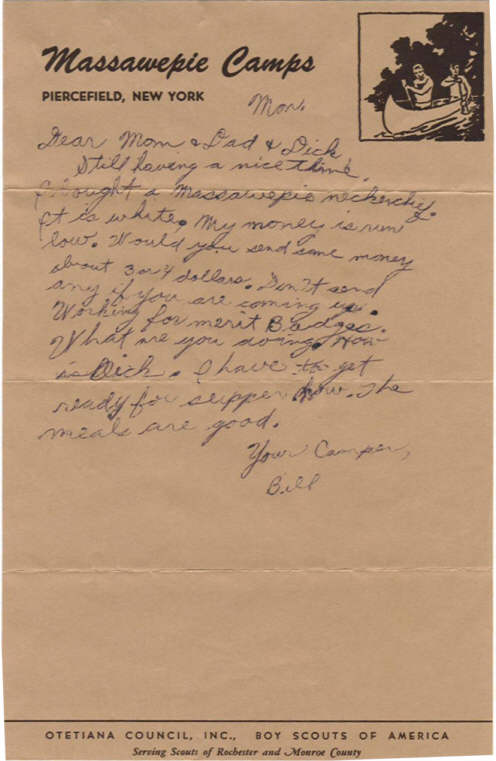 Massawepie Camps
PIERCEFIELD, NEW YORK
Mon.
Dear Mom & Dad & Dick
Still having a nice thime.
I bought a Massawepie neckerchef.
It is white. My money is run
low. Would you send some money
about 3 or 4 dollars. Don't send
any if you are coming up.
Working for merit Badges.
What are you doing. How
is Dick. I have to get
ready for supper now. The
meals are good.
Your Camper,
Bill
OTETIANA COUNCIL, INC., BOY SCOUTS OF AMERICA
Serving Scouts of Rochester and Monroe County